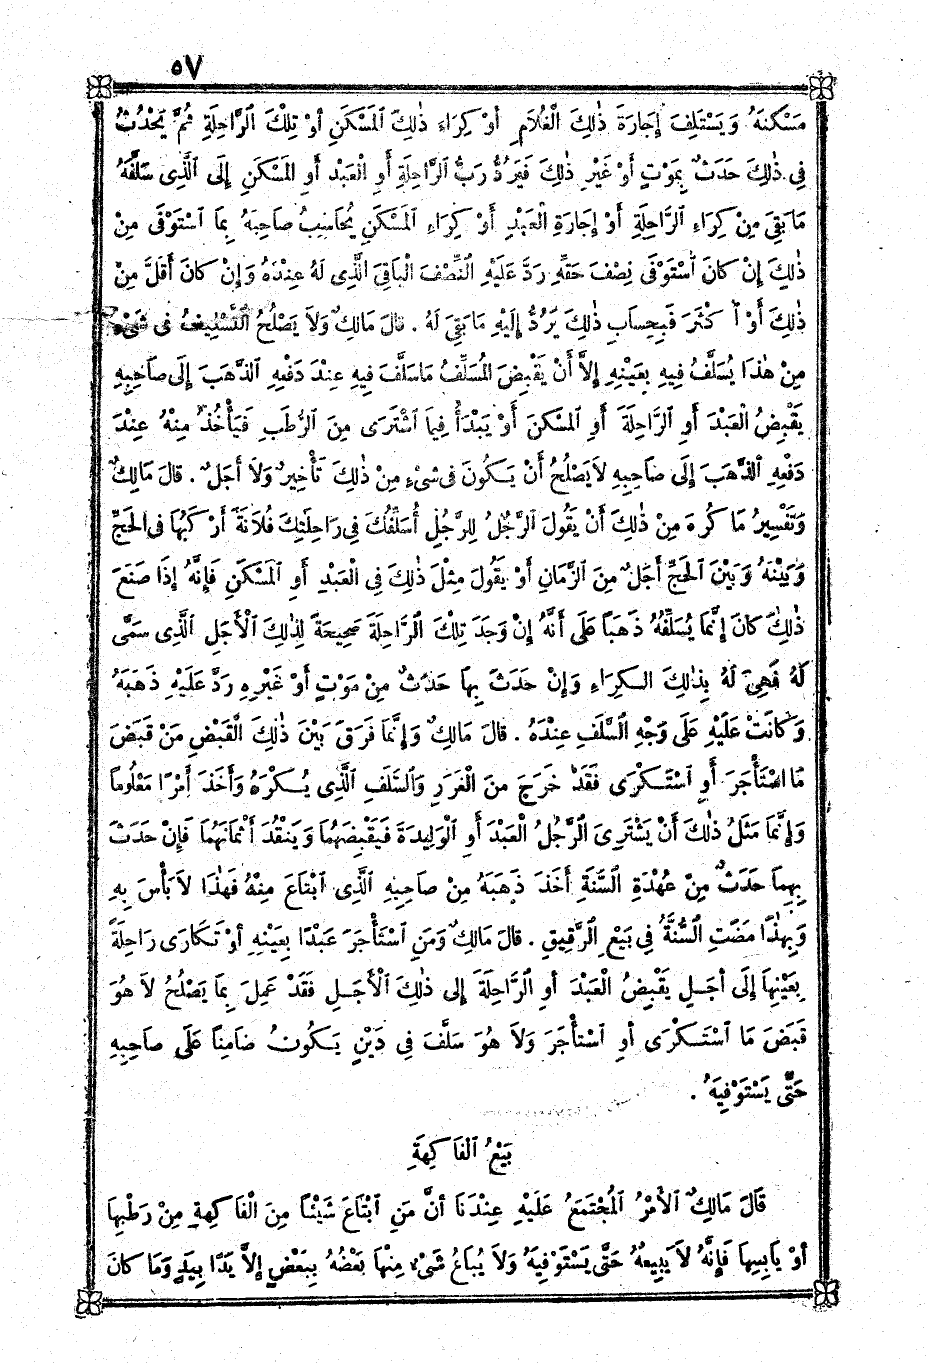 ٥٧
مَسْكَنَهُ وَيَسْتَلِفَ إِجَارَةَ ذٰلِكَ الْغُلَامِ أَوْ كِرَاءَ ذٰلِكَ الْمَسْكَنِ أَوْ تِلْكَ الرَّاحِلَةِ ثُمَّ يَحْدُثُ
فِي ذٰلِكَ حَدَثٌ بِمَوْتٍ أَوْ غَيْرِ ذٰلِكَ فَيَرُدُّ رَبُّ الرَّاحِلَةِ أَوِ الْعَبْدِ أَوِ الْمَسْكَنِ إِلَى الَّذِى سَلَّفَهُ
مَا بَقِىَ مِنْ كِرَاءِ الرَّاحِلَةِ أَوْ إِجَارَةِ الْعَبْدِ أَوْ كِرَاءِ الْمَسْكَنِ يُحَاسِبُ صَاحِبَهُ بِمَا اسْتَوْفَى مِنْ
ذٰلِكَ إِنْ كَانَ اسْتَوْفَى نِصْفَ حَقِّهِ رَدَّ عَلَيْهِ النِّصْفَ الْبَاقِىَ الَّذِى لَهُ عِنْدَهُ وَإِنْ كَانَ أَقَلَّ مِنْ
ذٰلِكَ أَوْ أَكْثَرَ فَبِحِسَابِ ذٰلِكَ يَرُدُّ إِلَيْهِ مَا بَقِىَ لَهُ . قَالَ مَالِكٌ وَلاَ يَصْلُحُ التَّسْلِيفُ فِى شَىْءٍ
مِنْ هٰذَا يُسَلَّفُ فِيهِ بِعَيْنِهِ إِلاَّ أَنْ يَقْبِضَ الْمُسَلِّفُ مَا سَلَّفَ فِيهِ عِنْدَ دَفْعِهِ الذَّهَبَ إِلَى صَاحِبِهِ
يَقْبِضُ الْعَبْدَ أَوِ الرَّاحِلَةَ أَوِ الْمَسْكَنَ أَوْ يَبْدَأُ فِيمَا اشْتَرَى مِنَ الرُّطَبِ فَيَأْخُذُ مِنْهُ عِنْدَ
دَفْعِهِ الذَّهَبَ إِلَى صَاحِبِهِ لاَ يَصْلُحُ أَنْ يَكُونَ فِى شَىْءٍ مِنْ ذٰلِكَ تَأْخِيرٌ وَلاَ أَجَلٌ . قَالَ مَالِكٌ
وَتَفْسِيرُ مَا كُرِهَ مِنْ ذٰلِكَ أَنْ يَقُولَ الرَّجُلُ لِلرَّجُلِ أُسَلِّفُكَ فِي رَاحِلَتِكَ فُلاَنَةَ أَرْكَبُهَا فِى الْحَجِّ
وَبَيْنَهُ وَبَيْنَ الْحَجِّ أَجَلٌ مِنَ الزَّمَانِ أَوْ يَقُولَ مِثْلَ ذٰلِكَ فِى الْعَبْدِ أَوِ الْمَسْكَنِ فَإِنَّهُ إِذَا صَنَعَ
ذٰلِكَ كَانَ إِنَّمَا يُسَلِّفُهُ ذَهَبًا عَلَى أَنَّهُ إِنْ وَجَدَ تِلْكَ الرَّاحِلَةَ صَحِيحَةً لِذٰلِكَ الْأَجَلِ الَّذِى سَمَّى
لَهُ فَهِىَ لَهُ بِذٰلِكَ الْكِرَاءِ وَإِنْ حَدَثَ بِهَا حَدَثٌ مِنْ مَوْتٍ أَوْ غَيْرِهِ رَدَّ عَلَيْهِ ذَهَبَهُ
وَكَانَتْ عَلَيْهِ عَلَى وَجْهِ السَّلَفِ عِنْدَهُ . قَالَ مَالِكٌ وَإِنَّمَا فَرَقَ بَيْنَ ذٰلِكَ الْقَبْضِ مَنْ قَبَضَ
مَا اسْتَأْجَرَ أَوِ اسْتَكْرَى فَقَدْ خَرَجَ مِنَ الْغَرَرِ وَالسَّلَفِ الَّذِى يُكْرَهُ وَأَخَذَ أَمْرًا مَعْلُومًا
وَإِنَّمَا مَثَلُ ذٰلِكَ أَنْ يَشْتَرِىَ الرَّجُلُ الْعَبْدَ أَوِ الْوَلِيدَةَ فَيَقْبِضَهُمَا وَيَنْقُدَ أَثْمَانَهُمَا فَإِنْ حَدَثَ
بِهِمَا حَدَثٌ مِنْ عُهْدَةِ السَّنَةِ أَخَذَ ذَهَبَهُ مِنْ صَاحِبِهِ الَّذِى ابْتَاعَ مِنْهُ فَهٰذَا لاَ بَأْسَ بِهِ
وَبِهٰذَا مَضَتِ السُّنَّةُ فِي بَيْعِ الرَّقِيقِ . قَالَ مَالِكٌ وَمَنِ اسْتَأْجَرَ عَبْدًا بِعَيْنِهِ أَوْ تَكَارَى رَاحِلَةً
بِعَيْنِهَا إِلَى أَجَلٍ يَقْبِضُ الْعَبْدَ أَوِ الرَّاحِلَةَ إِلَى ذٰلِكَ الْأَجَلِ فَقَدْ عَمِلَ بِمَا يَصْلُحُ لاَ هُوَ
قَبَضَ مَا اسْتَكْرَى أَوِ اسْتَأْجَرَ وَلاَ هُوَ سَلَّفَ فِى دَيْنٍ يَكُونُ ضَامِنًا عَلَى صَاحِبِهِ
حَتَّى يَسْتَوْفِيَهُ .
بَيْعُ الْفَاكِهَةِ
قَالَ مَالِكٌ الْأَمْرُ الْمُجْتَمَعُ عَلَيْهِ عِنْدَنَا أَنَّ مَنِ ابْتَاعَ شَيْئًا مِنَ الْفَاكِهَةِ مِنْ رَطْبِهَا
أَوْ يَابِسِهَا فَإِنَّهُ لاَ يَبِيعُهُ حَتَّى يَسْتَوْفِيَهُ وَلاَ يُبَاعُ شَىْءٌ مِنْهَا بَعْضُهُ بِبَعْضٍ إِلاَّ يَدًا بِيَدٍ وَمَا كَانَ